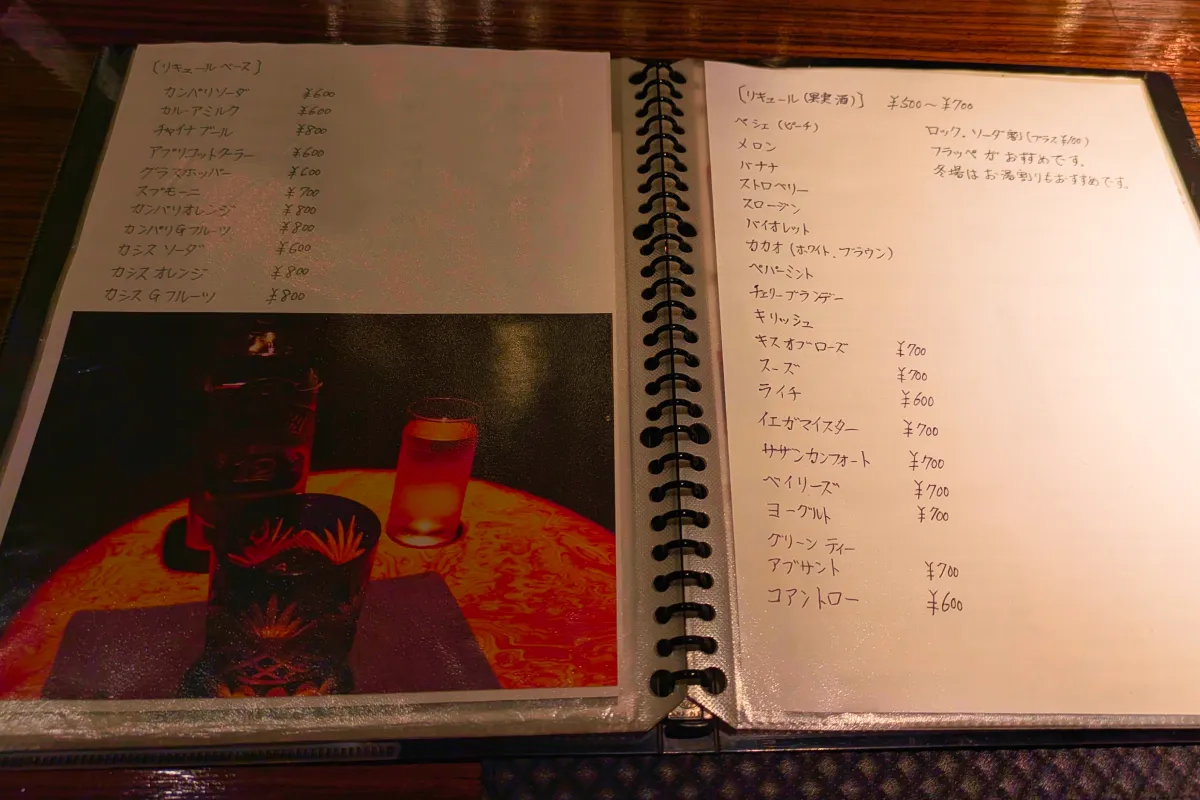 [リキュールベース]
カンパリソーダ ¥600
カルーアミルク ¥600
チャイナブルー ¥800
アプリコットクーラー ¥600
グラスホッパー ¥600
スプモーニ ¥700
カンパリオレンジ ¥800
カンパリGフルーツ ¥800
カシスソーダ ¥600
カシスオレンジ ¥800
カシスGフルーツ ¥800
[リキュール(果実酒)] ¥500〜¥700
ペシェ(ピーチ)
メロン
バナナ
ストロベリー
スロージン
バイオレット
カカオ(ホワイト.ブラウン)
ペパーミント
チェリーブランデー
キリッシュ
キスオブローズ ¥700
スーズ ¥700
ライチ ¥600
イエガマイスター ¥700
サザンカンフォート ¥700
ベイリーズ ¥700
ヨーグルト ¥700
グリーンティー
アブサント ¥700
コアントロー ¥600
ロック、ソーダ割(プラス¥100)
フラッペがおすすめです。
冬場はお湯割りもおすすめです。